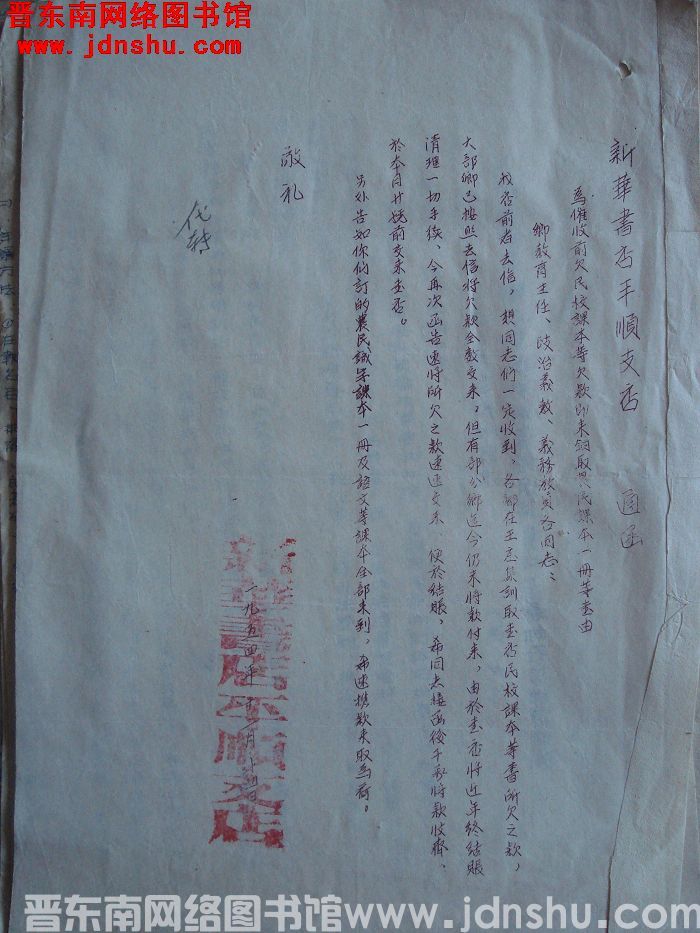 晋东南网络图书馆
www.jdnshu.com
新華書店平順支店 通函
為催收前欠民校課本等欠款即來領取農民課本一冊等書由
鄉教育主任、政治義教、義務教員各同志：
我店前者去信，想同志們一定收到，各鄉在五三年訓取書店民校課本等書所欠之款，
大部鄉已按照去信將欠款全數交來，但有部分鄉迄今仍未將款付來，由於書店將近年終結賬
清理一切手续、今再次函告速將所欠之款速速交来、便於結賬，希同志接函後千萬將款收齊、
於本月廿號前交來書店。
另外告知你们訂的農民識字課本一冊及語文等課本全部来到，希速携款来取為荷。
敬礼
代转
一九五四年 月 日
新華書店平順支店
晋东南网络图书馆www.jdnshu.com